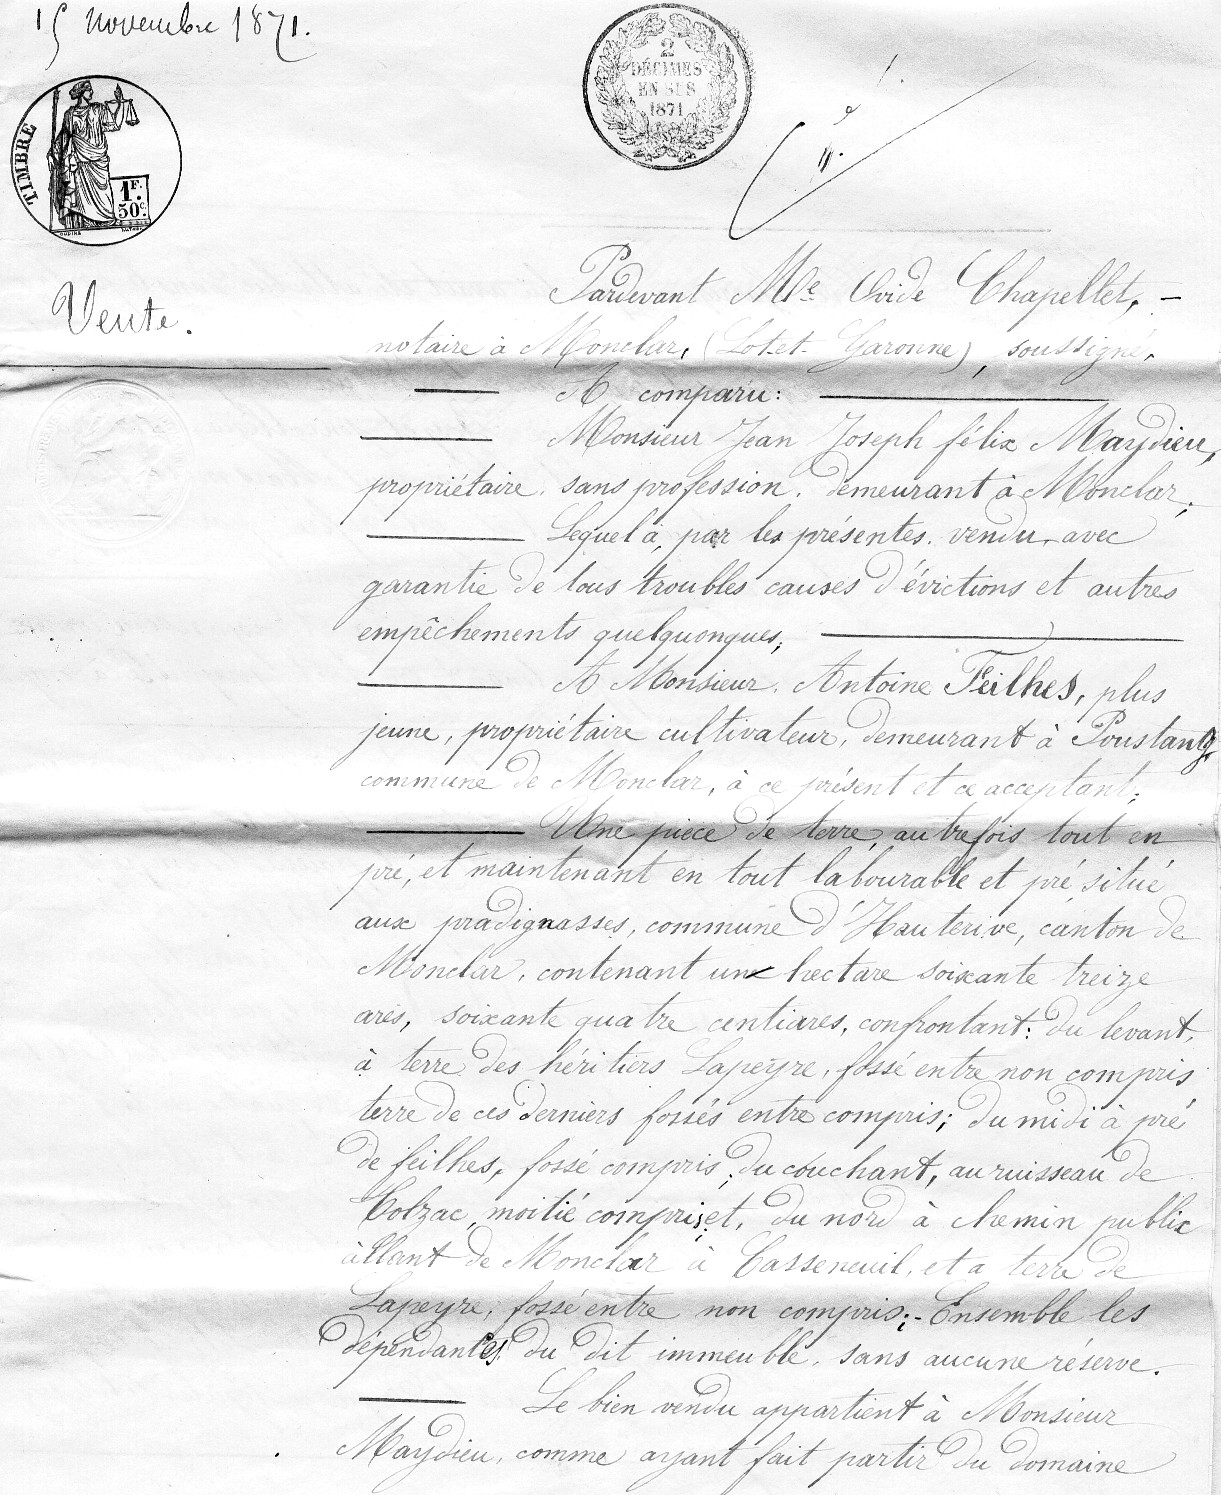 15 novembre 1871.
2
DÉCIMES
EN SUS
1871
TIMBRE
1F.
50c.
Vente.
Pardevant Me Ovide Chapellet, -
notaire à Monclar, (Lot-et-Garonne), soussigné,
A comparu:
Monsieur Jean Joseph félix Maydieu,
propriétaire, sans profession, demeurant à Monclar,
Lequel à, par les présentes, vendu, avec
garantie de tous troubles causes d'évictions et autres
empêchements quelquonques;
A Monsieur, Antoine Feilhes, plus
jeune, propriétaire cultivateur, demeurant à Poustang,
commune de Monclar, à ce présent et ce acceptant;
Une pièce de terre, autrefois tout en
pré, et maintenant en tout labourable et pré situé
aux pradignasses, commune d'Hauterive, canton de
Monclar, contenant un hectare soixante treize
ares, soixante quatre centiares, confrontant: du levant,
à terre des héritiers Lapeyre, fossé entre non compris
terre de ces derniers fossés entre compris; du midi à pré
de feilhes, fossé compris; du couchant, au ruisseau de
Colzac, moitié compris; et, du nord à chemin public
allant de Monclar à Casseneuil, et a terre de
Lapeyre, fossé entre non compris;- Ensemble les
dépendances du dit immeuble, sans aucune réserve.
Le bien vendu appartient à Monsieur
Maydieu, comme ayant fait partir du domaine